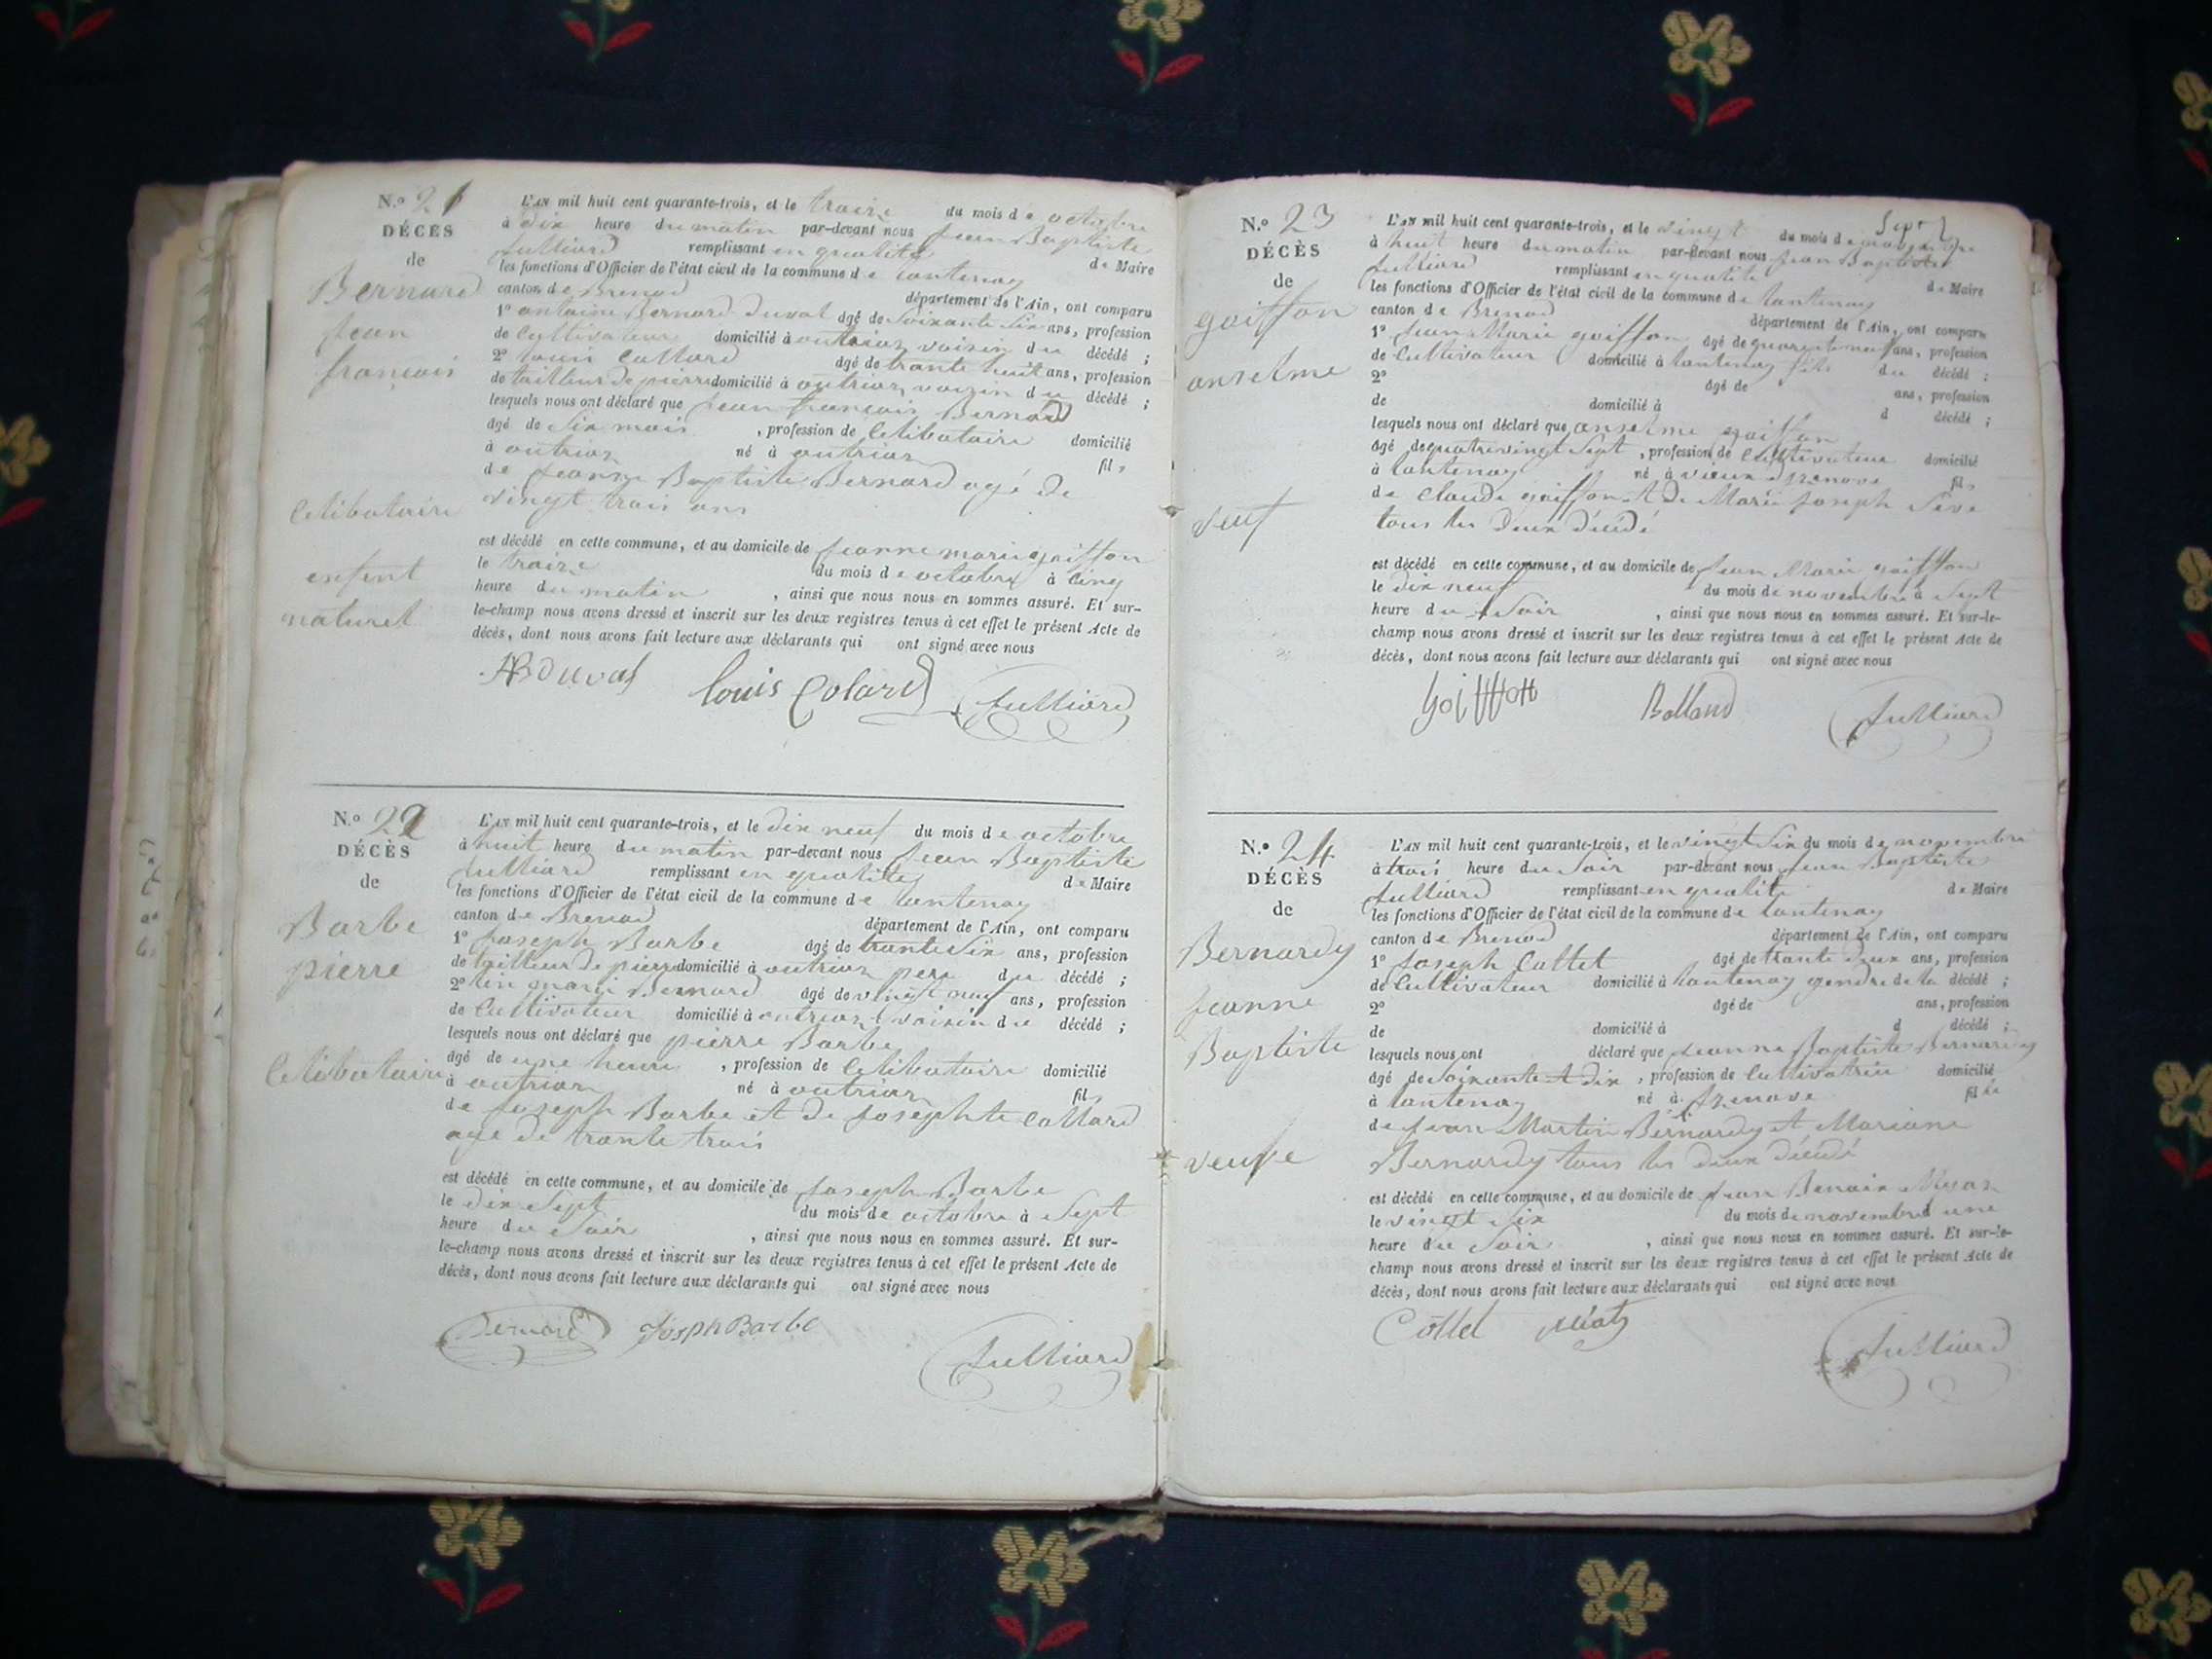 N.º 21
DÉCÈS
de
Bernard
jean
françois
Celibataire
enfent
naturel
L'AN mil huit cent quarante-trois, et le traize du mois de octobre
à dix heure du matin par-devant nous jean Baptiste
julliard remplissant en qualité de Maire
les fonctions d'Officier de l'état civil de la commune de lantenay
canton de Brenod département de l'Ain, ont comparu
1º antoine Bernard duval âgé de Soixante Six ans, profession
de Cultivateur domicilié à outriaz voisin du décédé ;
2º louis Collard âgé de trante huit ans, profession
de tailleur de pierre domicilié à outriaz voizin du décédé ;
lesquels nous ont déclaré que jean françois Bernard
âgé de Six mois , profession de Celibataire domicilié
à outriaz né à outriaz fils
de jeanne Baptiste Bernard agé de
vingt trois ans
est décédé en cette commune, et au domicile de jeanne marie goiffon
le traize du mois de octobre à Cinq
heure du matin , ainsi que nous nous en sommes assuré. Et sur-
le-champ nous avons dressé et inscrit sur les deux registres tenus à cet effet le présent Acte de
décès, dont nous avons fait lecture aux déclarants qui ont signé avec nous
ABduval louis Colard julliard
N.º 22
DÉCÈS
de
Barbe
pierre
Celibataire
L'AN mil huit cent quarante-trois, et le dix neuf du mois de octobre
à huit heure du matin par-devant nous jean Baptiste
julliard remplissant en qualité de Maire
les fonctions d'Officier de l'état civil de la commune de lantenay
canton de Brenod département de l'Ain, ont comparu
1º joseph Barbe âgé de trante Six ans, profession
de tailleur de pierre domicilié à outriaz pere du décédé ;
2º Bernard âgé de vingt neuf ans, profession
de Cultivateur domicilié à outriaz voisin du décédé ;
lesquels nous ont déclaré que pierre Barbe
âgé de une heure , profession de Celibataire domicilié
à outriaz né à outriaz fils
de joseph Barbe et de josephte Collard
age de trante trois
est décédé en cette commune, et au domicile de joseph Barbe
le dix Sept du mois de octobre à Sept
heure du Soir , ainsi que nous nous en sommes assuré. Et sur-
le-champ nous avons dressé et inscrit sur les deux registres tenus à cet effet le présent Acte de
décès, dont nous avons fait lecture aux déclarants qui ont signé avec nous
Bernard Joseph Barbe
julliard
N.º 23
DÉCÈS
de
goiffon
anselme
veuf
L'AN mil huit cent quarante-trois, et le vingt du mois de novembre
à huit heure du matin par-devant nous jean Baptiste
julliard remplissant en qualité de Maire
les fonctions d'Officier de l'état civil de la commune de lantenay
canton de Brenod département de l'Ain, ont comparu
1º jean Marie goiffon âgé de quarente neuf ans, profession
de Cultivateur domicilié à lantenay fils du décédé ;
2º âgé de ans, profession
de domicilié à d décédé ;
lesquels nous ont déclaré que anselme goiffon
âgé de quatrevingt Sept , profession de Cultivateur domicilié
à lantenay né à vieux d'izenave fils
de Claude goiffon et de Marie joseph Seve
tous les deux décédé
est décédé en cette commune, et au domicile de jean Marie goiffon
le dix neuf du mois de novembre à Sept
heure du Soir , ainsi que nous nous en sommes assuré. Et sur-le-
champ nous avons dressé et inscrit sur les deux registres tenus à cet effet le présent Acte de
décès, dont nous avons fait lecture aux déclarants qui ont signé avec nous
goiffon Balland julliard
N.º 24
DÉCÈS
de
Bernardy
jeanne
Baptiste
veuve
L'AN mil huit cent quarante-trois, et le vingt Six du mois de novembre
à trois heure du Soir par-devant nous jean Baptiste
julliard remplissant en qualité de Maire
les fonctions d'Officier de l'état civil de la commune de lantenay
canton de Brenod département de l'Ain, ont comparu
1º joseph Cottet âgé de trante deux ans, profession
de Cultivateur domicilié à lantenay gendre de la décédé ;
2º âgé de ans, profession
de domicilié à d décédé ;
lesquels nous ont déclaré que jeanne Baptiste Bernardy
âgé de Soixante et dix , profession de Cultivatrice domicilié
à lantenay né à izenave fille
de jean Martin Bernardy et Mariane
Bernardy tous les deux décédé
est décédé en cette commune, et au domicile de jean Benoix
le vingt Six du mois de novembre à une
heure du Soir , ainsi que nous nous en sommes assuré. Et sur-le-
champ nous avons dressé et inscrit sur les deux registres tenus à cet effet le présent Acte de
décès, dont nous avons fait lecture aux déclarants qui ont signé avec nous
Cottet
julliard